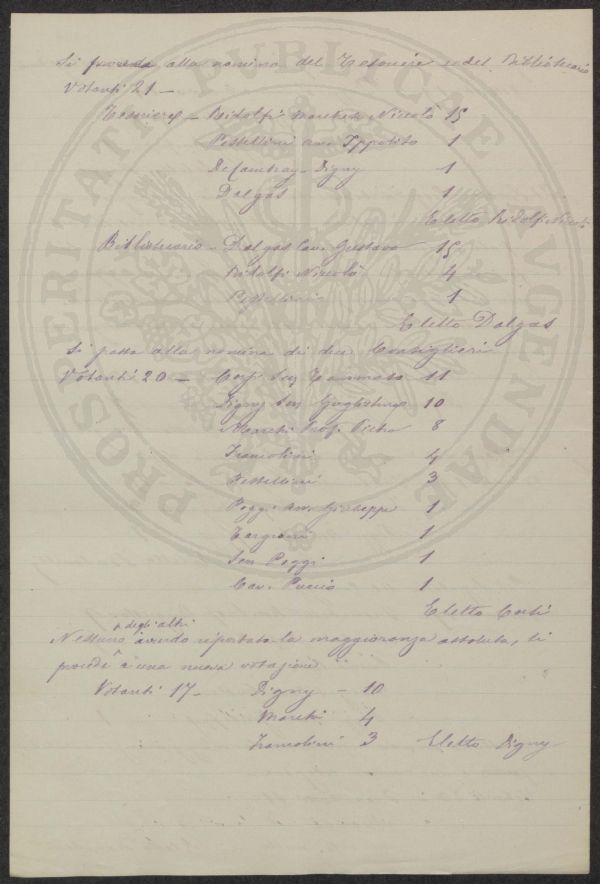 Si procede alla nomina del Tesoriere e del Bibliotecario
Votanti 21 —
Tesoriere — Ridolfi Marchese Niccolò 15
Pestellini Avv. Ippolito 1
De Cambray-Digny 1
Dalgas 1
Eletto Ridolfi Niccolò
Bibliotecario — Dalgas Cav. Gustavo 15
Ridolfi Niccolò 4
Pestellini 1
Eletto Dalgas
Si passa alla nomina di due Consiglieri
Votanti 20 — Corsi Sen Tommaso 11
Digny Sen Guglielmo 10
Marchi Prof. Pietro 8
Franolini 4
Pestellini 3
Poggi Avv. Giuseppe 1
Targioni 1
Sen Poggi 1
Cav. Puccio 1
Eletto Corsi
degli altri
Nessuno avendo riportato la maggioranza assoluta, si
procede a una nuova votazione
Votanti 17 — Digny — 10
Marchi 4
Franolini 3 Eletto Digny
PROSPERITATI PUBLICAE AUGENDAE